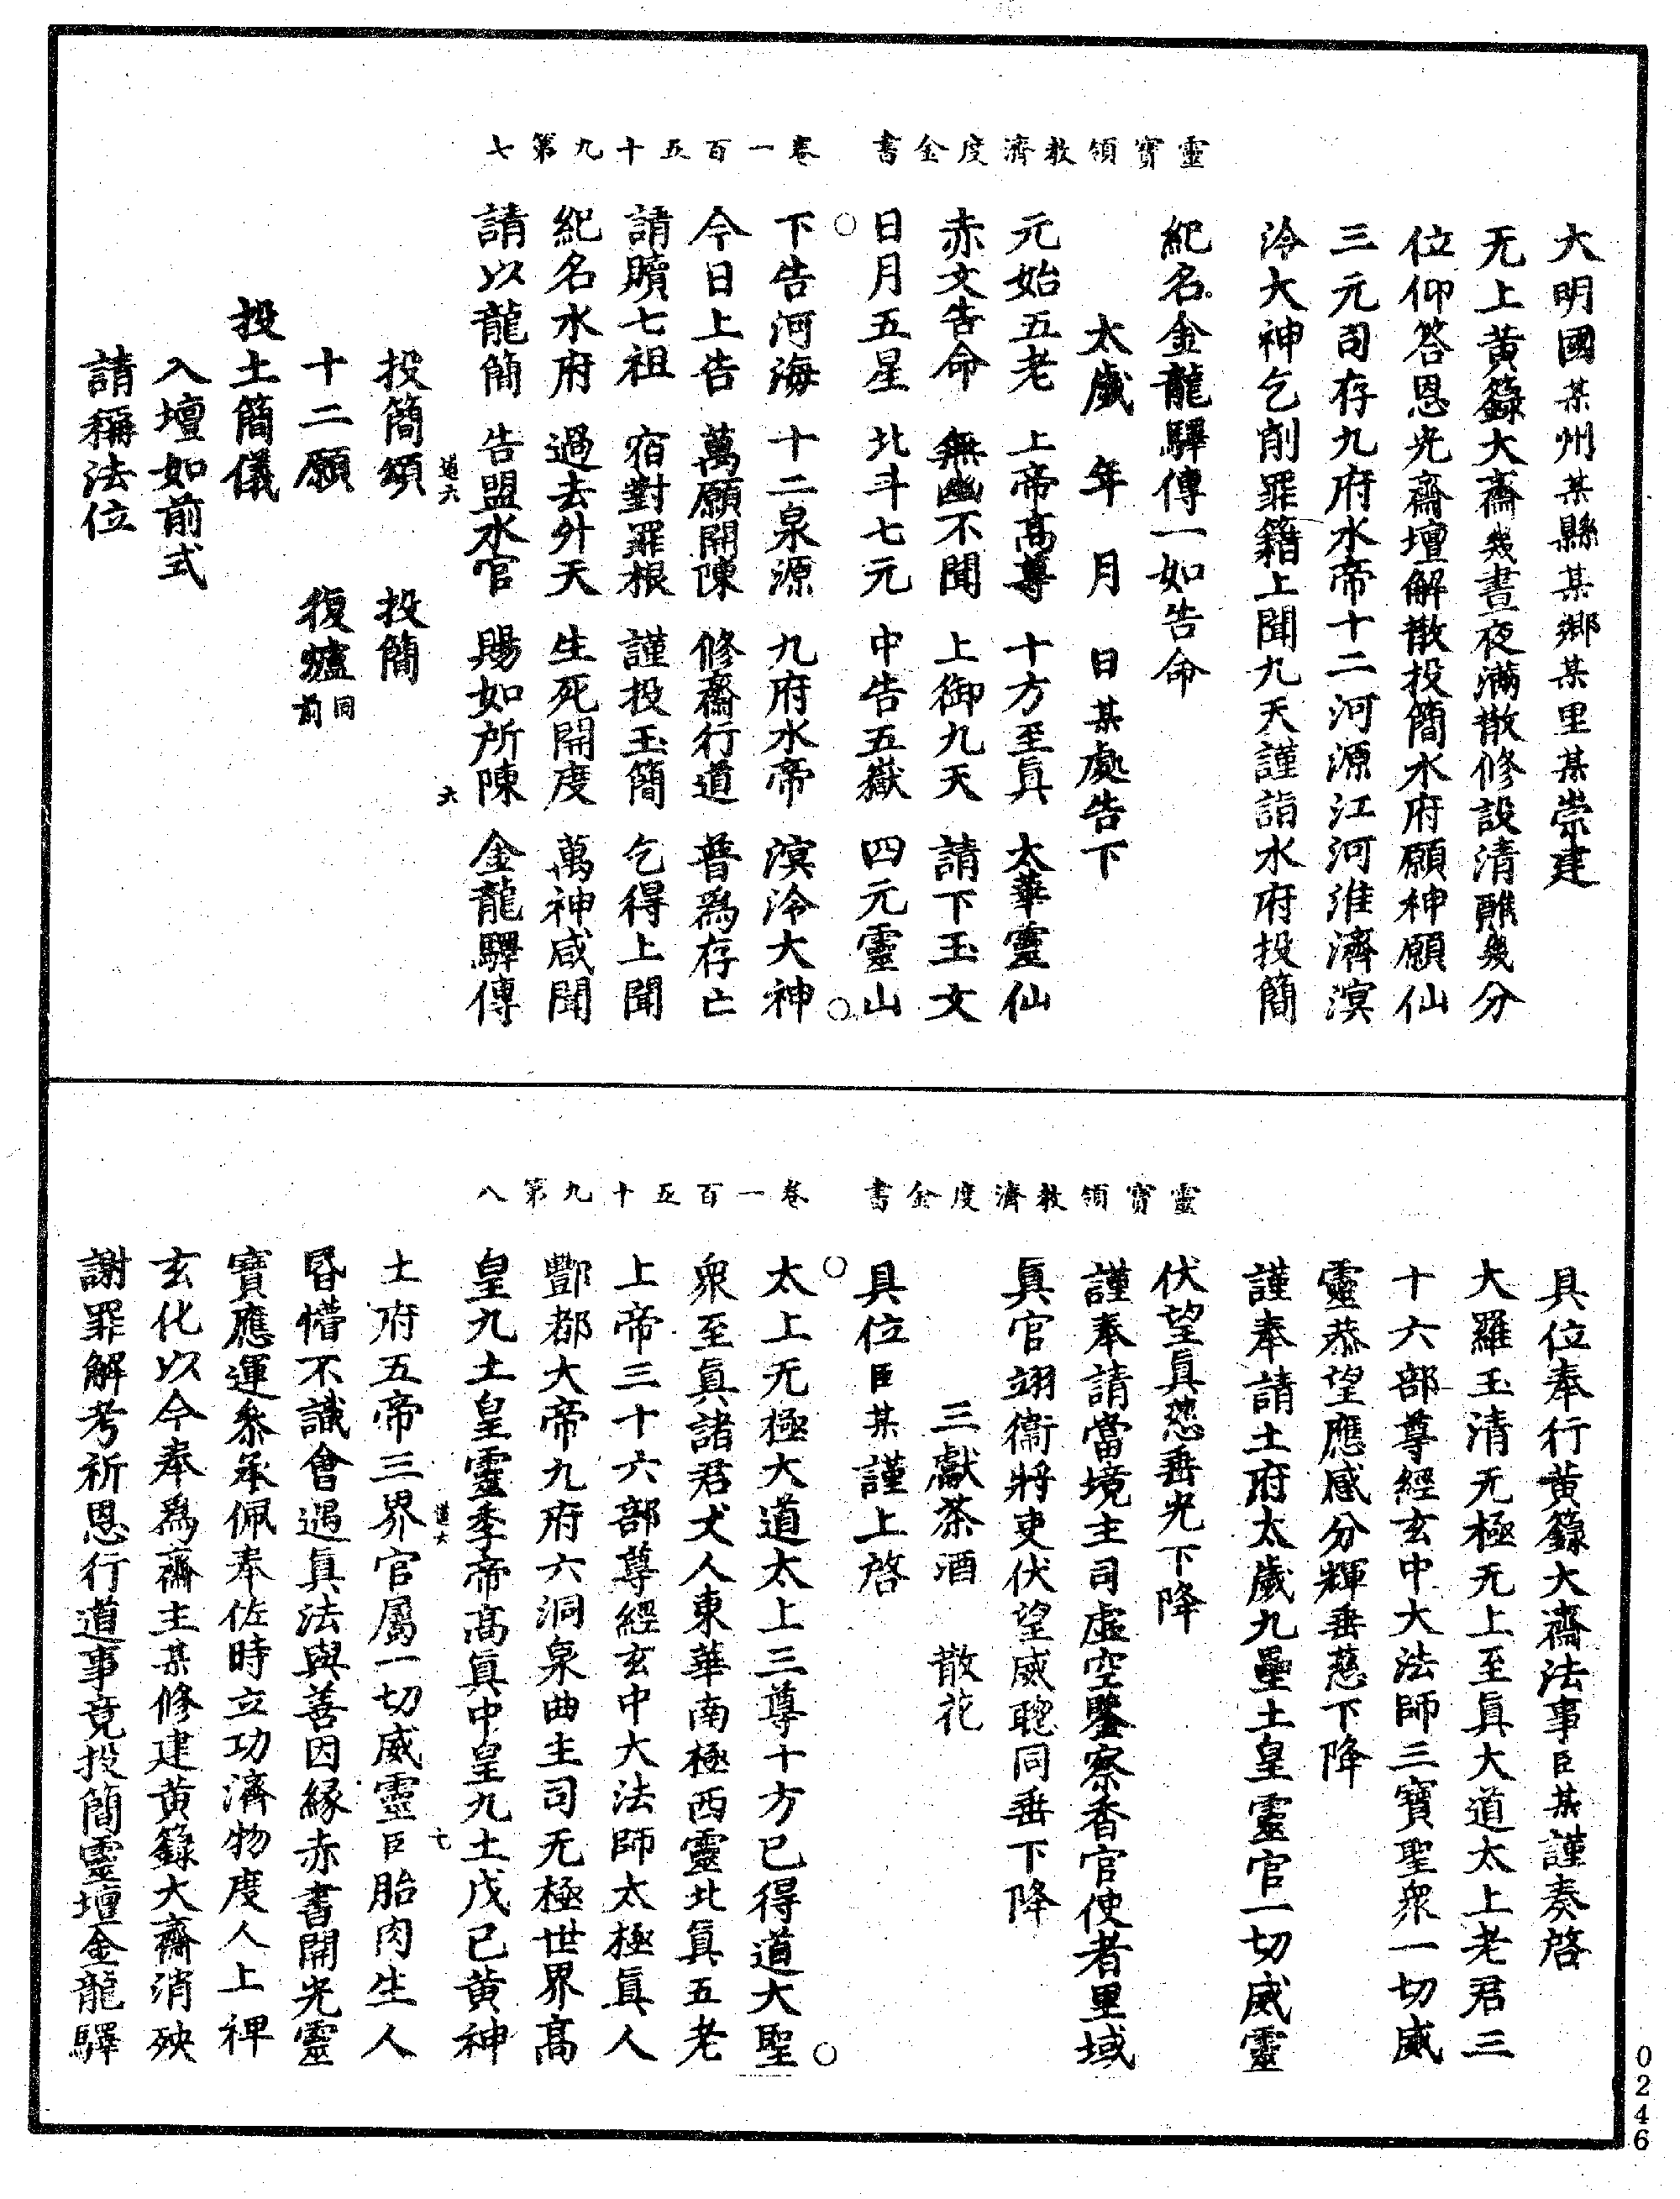 靈寶領教濟度金書　卷一百五十九第七
大明國某州某縣某鄉某里某崇建
无上黃籙大齋幾晝夜滿散修設清醮幾分
位仰答恩光齋壇解散投簡水府願神願仙
三元司存九府水帝十二河源江河淮濟溟
泠大神乞削罪籍上聞九天謹詣水府投簡
紀名金龍驛傳一如告命
太歲　年　月　日某處告下
元始五老　上帝高尊　十方至眞　太華靈仙
赤文告命　無幽不聞　上御九天　請下玉文
日月五星　北斗七元　中告五嶽　四元靈山
下告河海　十二泉源　九府水帝　溟泠大神
今日上告　萬願開陳　修齋行道　普爲存亡
請贖七祖　宿對罪根　謹投玉簡　乞得上聞
紀名水府　過去升天　生死開度　萬神咸聞
請以龍簡　告盟水官　賜如所陳　金龍驛傳
道六　六
投簡頌　投簡
十二願　復爐同前
投土簡儀
入壇如前式
請稱法位
靈寶領教濟度金書　卷一百五十九第八
具位奉行黃籙大齋法事臣某謹奏啓
大羅玉清无極无上至眞大道太上老君三
十六部尊經玄中大法師三寶聖衆一切威
靈恭望應感分輝垂慈下降
謹奉請土府太歲九壘土皇靈官一切威靈
伏望眞慈垂光下降
謹奉請當境主司虛空鑒察香官使者里域
眞官翊衞將吏伏望威聰同垂下降
三獻茶酒　散花
具位臣某謹上啓
太上无極大道太上三尊十方已得道大聖
衆至眞諸君丈人東華南極西靈北眞五老
上帝三十六部尊經玄中大法師太極眞人
酆都大帝九府六洞泉曲主司无極世界高
皇九土皇靈季帝高眞中皇九土戊己黃神
道六　七
土府五帝三界官屬一切威靈臣胎肉生人
昏懵不識會遇眞法與善因緣赤書開光靈
寶應運叅承佩奉佐時立功濟物度人上裨
玄化以今奉爲齋主某修建黃籙大齋消殃
謝罪解考祈恩行道事竟投簡靈壇金龍驛
0246